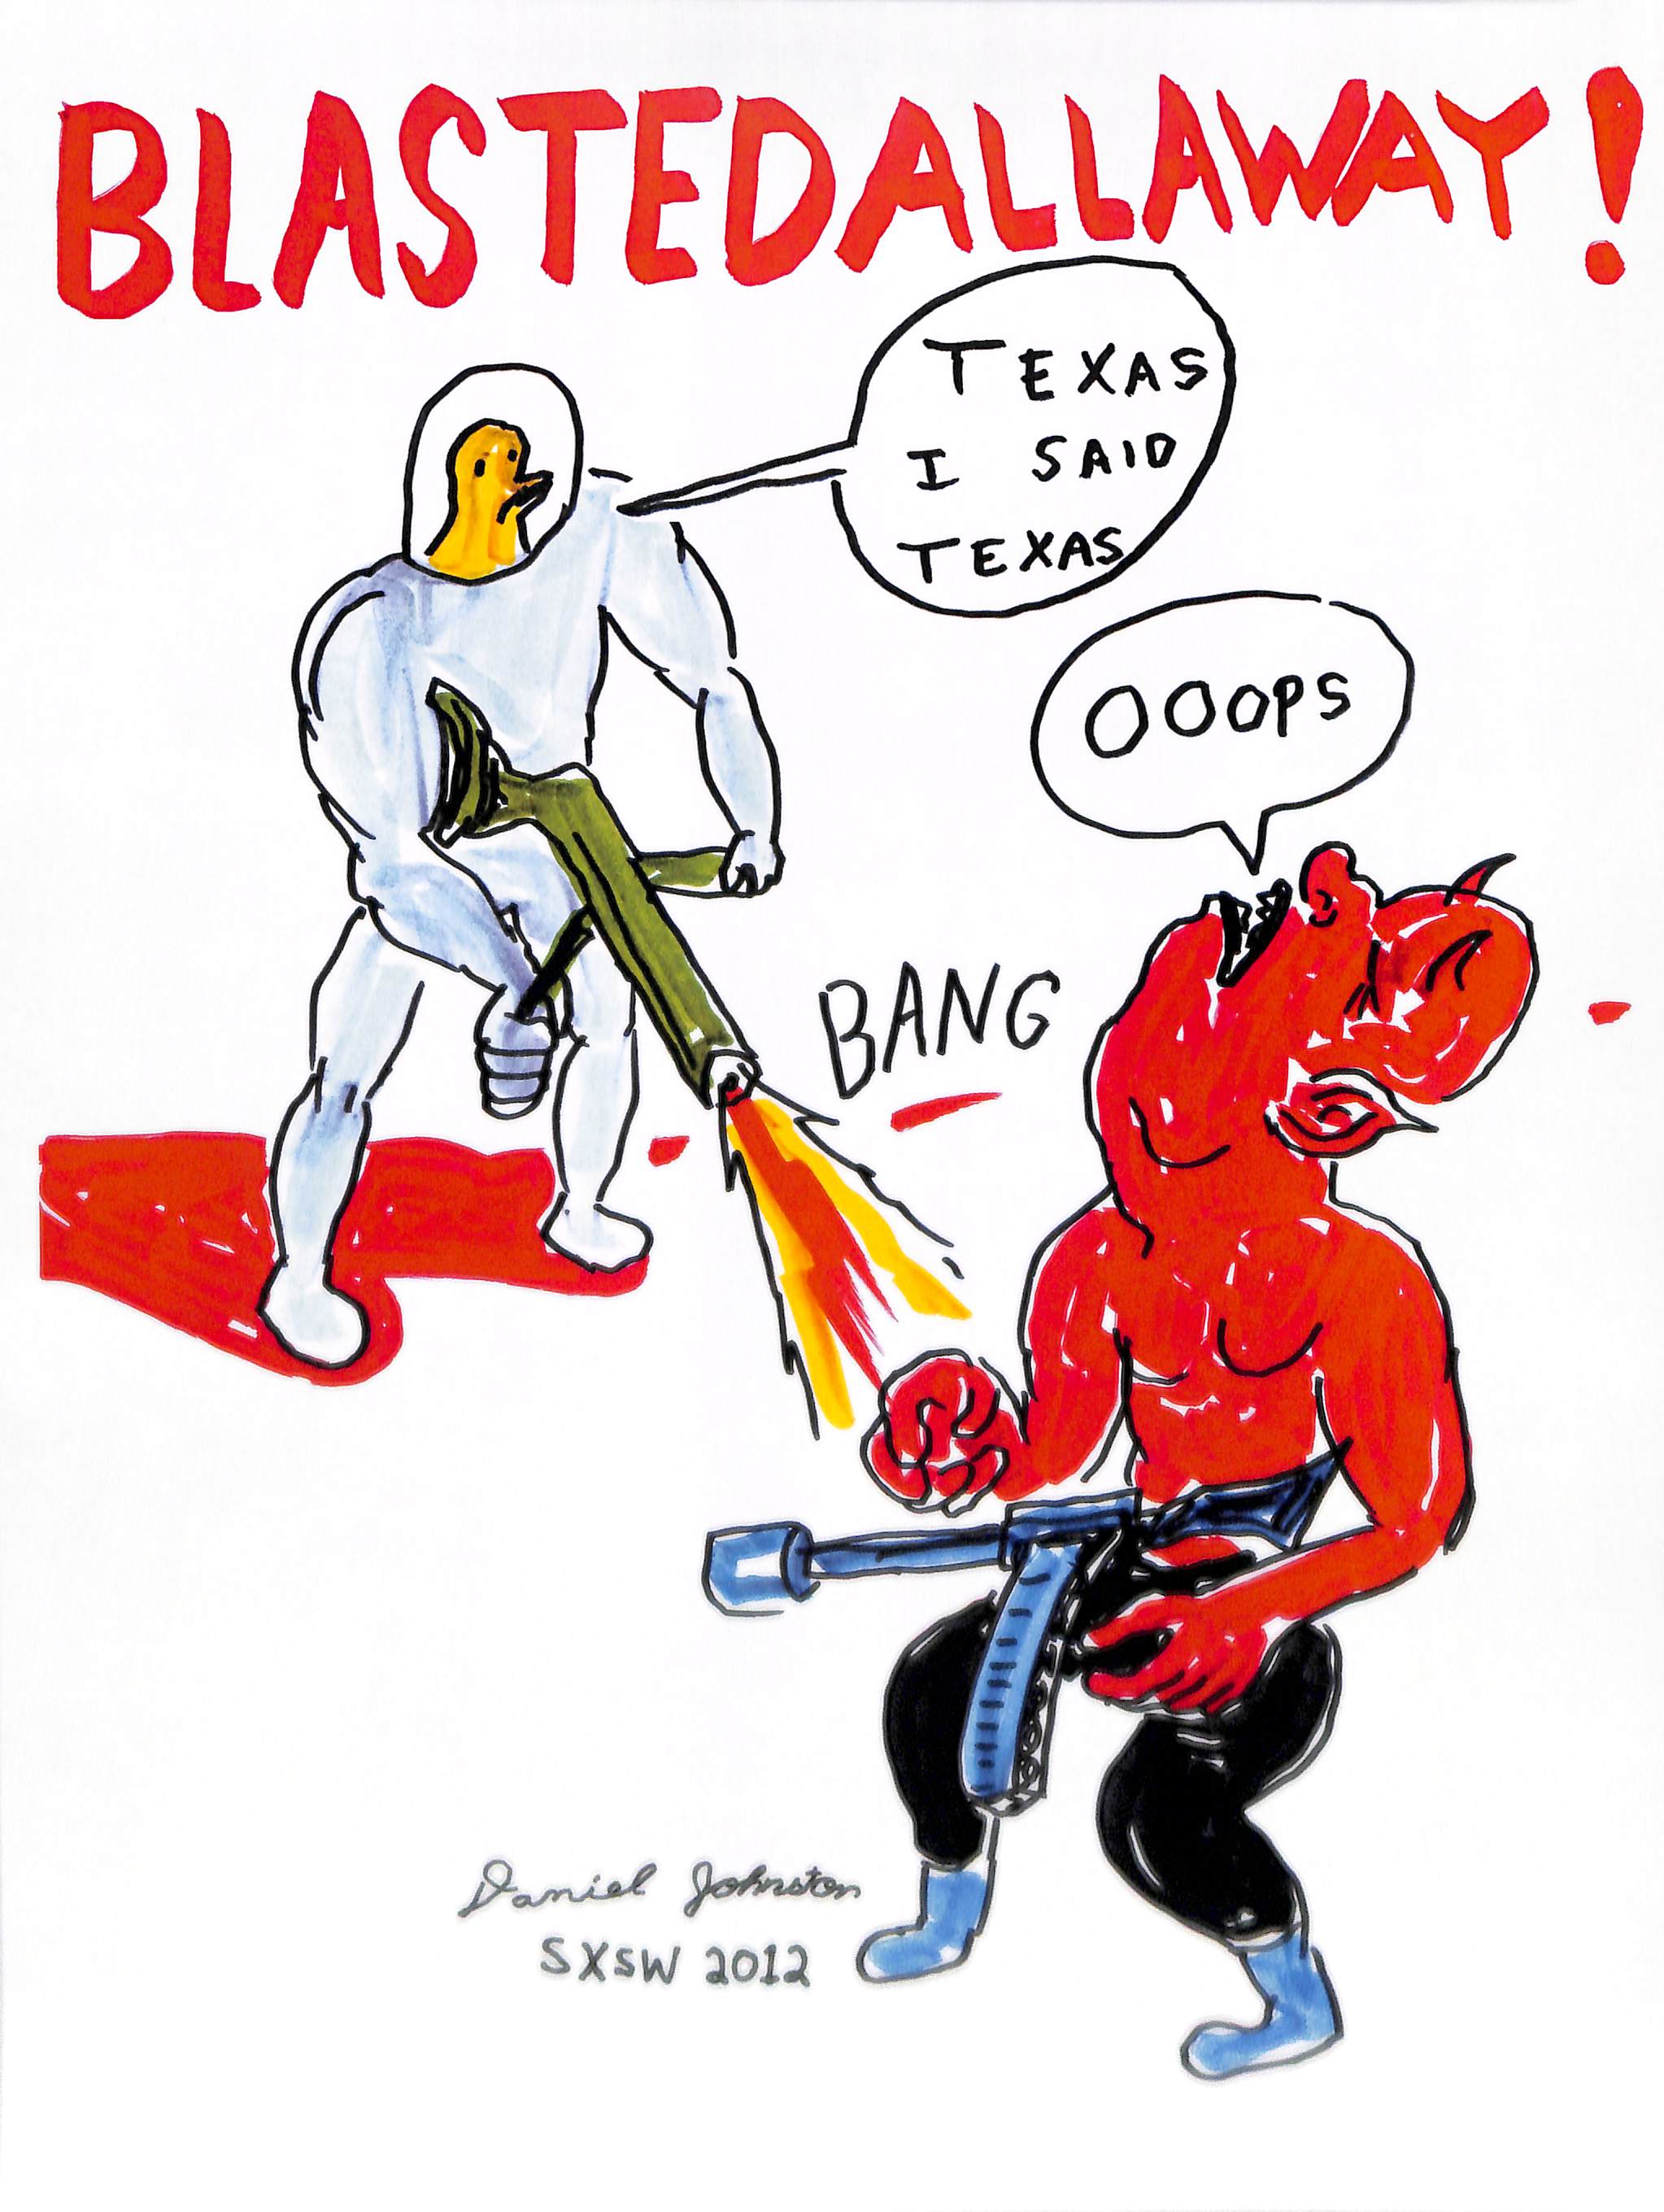 BLASTEDALLAWAY!
TEXAS
I SAID
TEXAS
OOOPS
BANG
Daniel Johnston
SXSW 2012